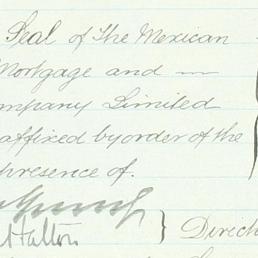 Seal of the Mexican
Mortgage and
ompany Limited
affixed by order of the
presence of.
Direc